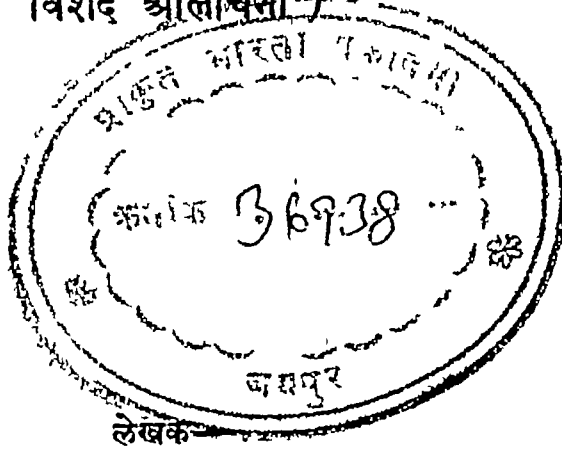 विशद आलोचना
प्राकृत भारती अकादमी
क्रमांक 36938
जयपुर
लेखक—